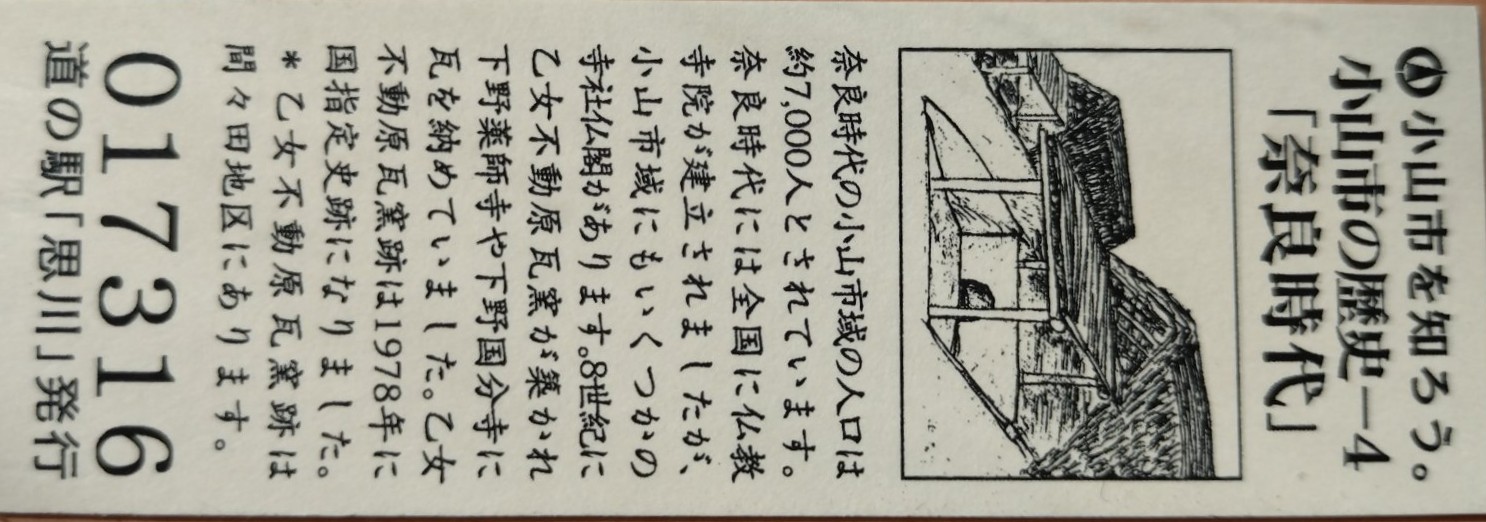 小山市を知ろう。
小山市の歴史―4
「奈良時代」
奈良時代の小山市域の人口は
約7,000人とされています。
奈良時代には全国に仏教
寺院が建立されましたが、
小山市域にもいくつかの
寺社仏閣があります。8世紀に
乙女不動原瓦窯が築かれ
下野薬師寺や下野国分寺に
瓦を納めていました。乙女
不動原瓦窯跡は1978年に
国指定史跡になりました。
*乙女不動原瓦窯跡は
間々田地区にあります。
017316
道の駅「思川」発行